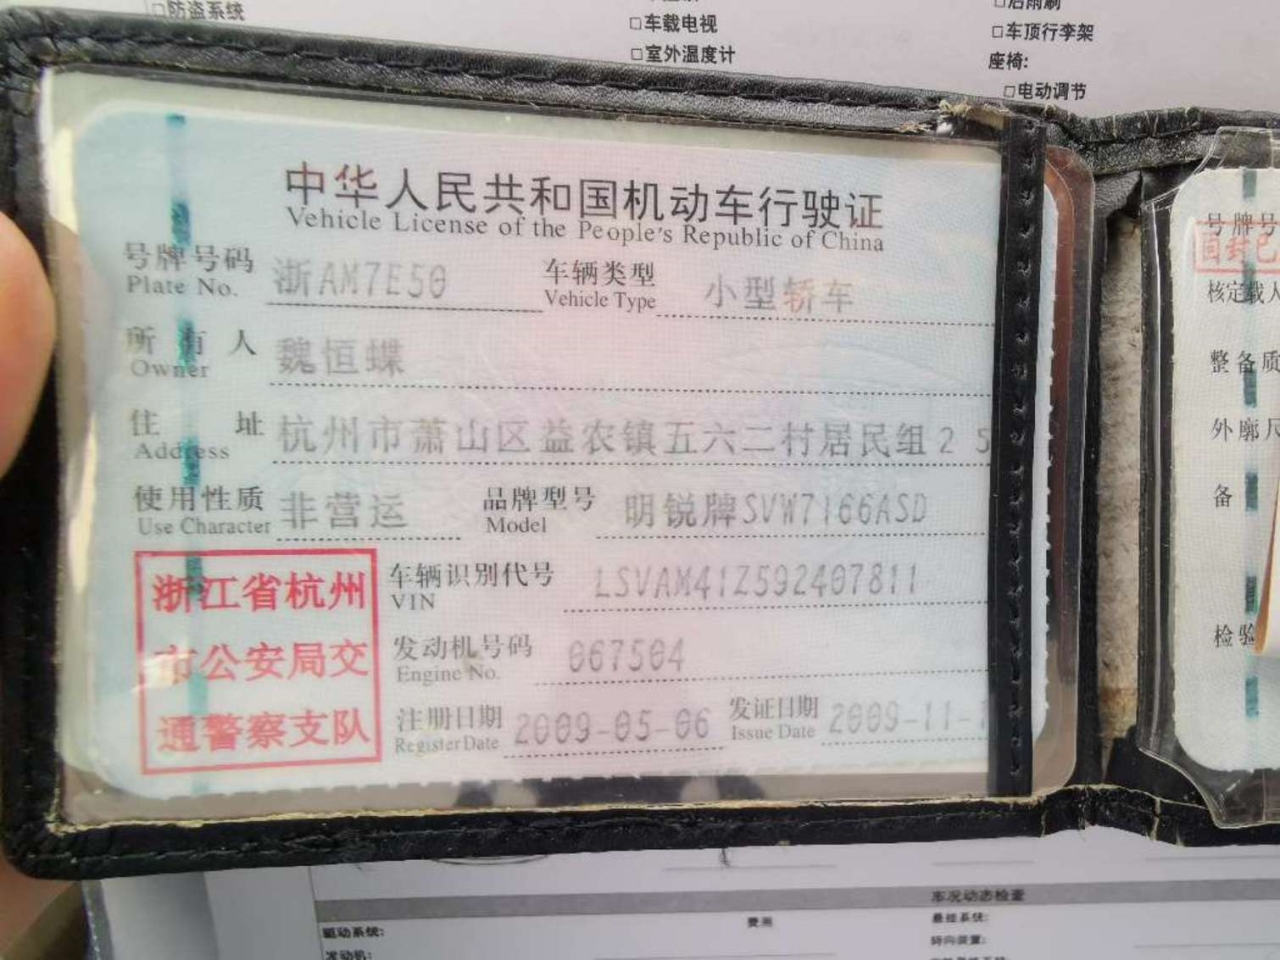 □防盗系统
□车载电视
□室外温度计
□后雨刷
□车顶行李架
座椅:
□电动调节
中华人民共和国机动车行驶证
Vehicle License of the People's Republic of China
号牌号码 浙AM7E50 车辆类型 小型轿车
Plate No. Vehicle Type
所有人 魏恒蝶
Owner
住址 杭州市萧山区益农镇五六二村居民组25
Address
使用性质 非营运 品牌型号 明锐牌SVW7166ASD
Use Character Model
浙江省杭州
市公安局交
通警察支队
车辆识别代号 LSVAM41Z592407811
VIN
发动机号码 067504
Engine No.
注册日期 2009-05-06 发证日期 2009-11-
Register Date Issue Date
号牌号
核定载人
整备质
外廓尺
备
检验
车况动态检查
驱动系统: 费用 悬挂系统:
发动机: 转向装置: